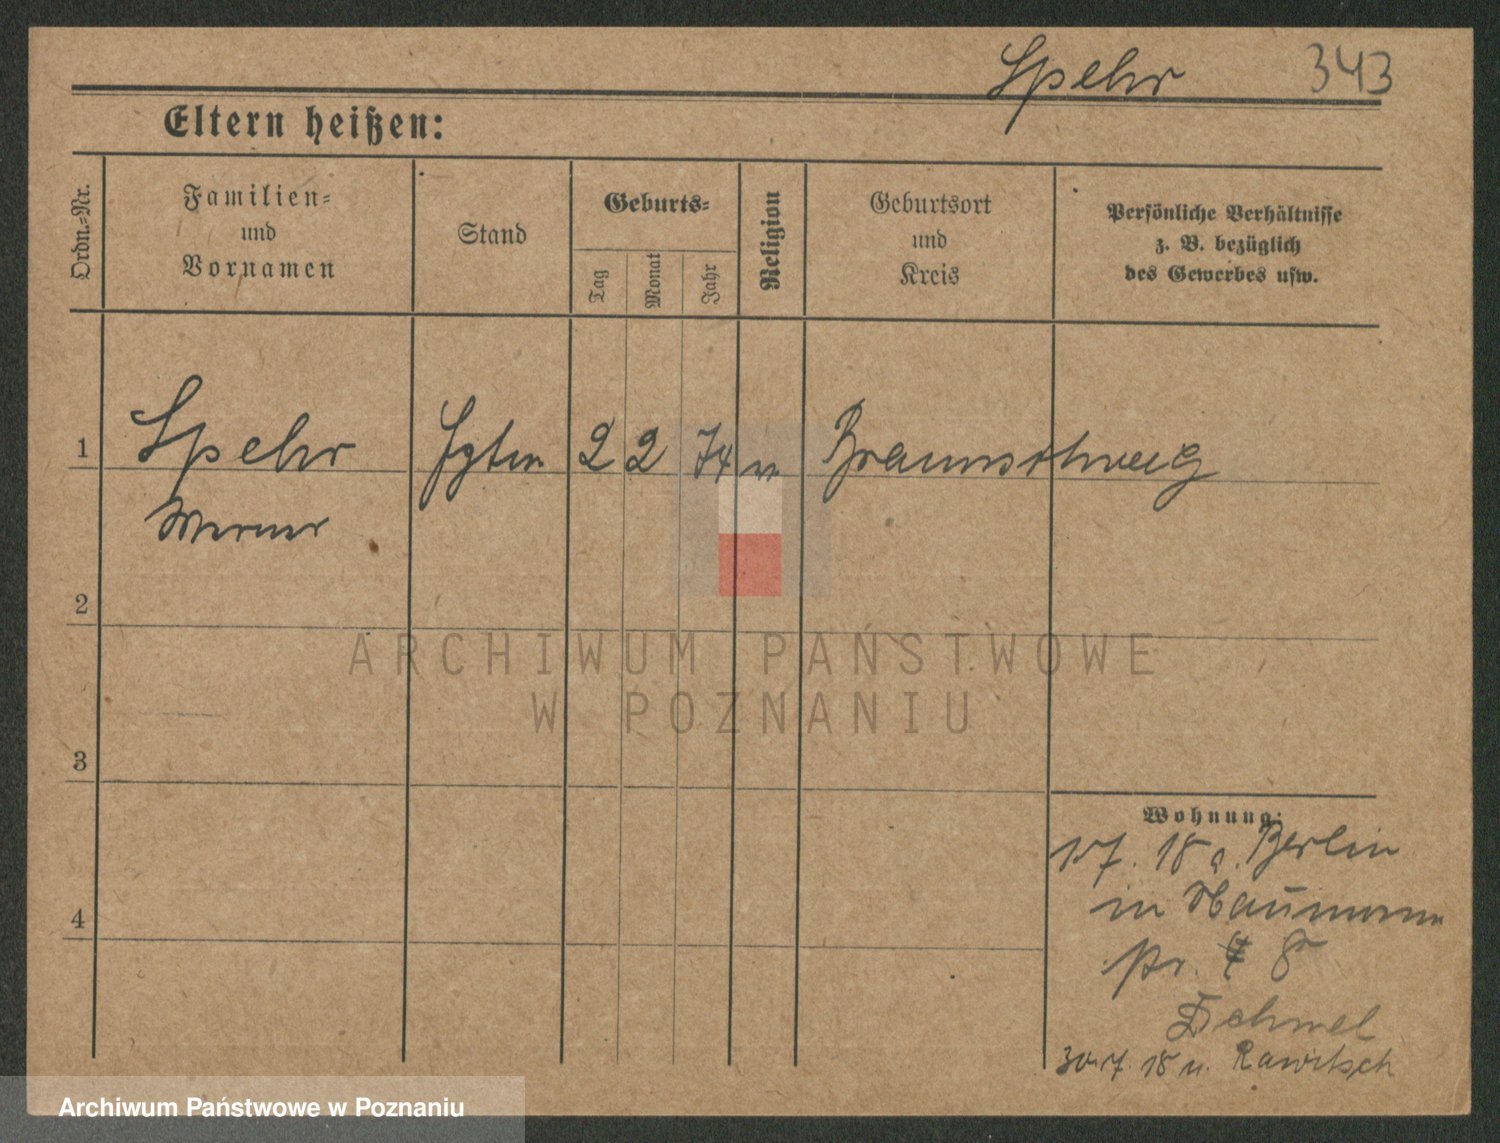 Spehr 343
Eltern heißen:
Ordn.-Nr.
Familien-
und
Vornamen
Stand
Geburts-
Tag
Monat
Jahr
Religion
Geburtsort
und
Kreis
Persönliche Verhältnisse
z. B. bezüglich
des Gewerbes usw.
1 Spehr 2 2 74 Braunschweig
Werner
2
3
4
ARCHIWUM PAŃSTWOWE
W POZNANIU
Wohnung:
17. 18 a. Berlin
in Naumann
8
Dehmel
30.7.18 n. Rawitsch
Archiwum Państwowe w Poznaniu